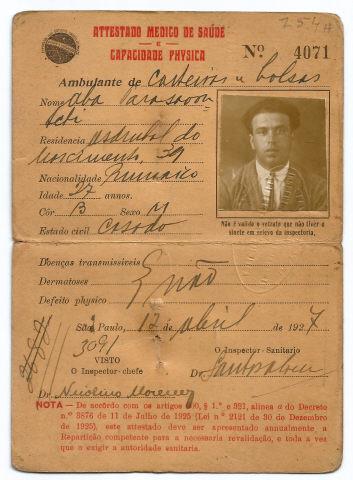 254#
ATTESTADO MEDICO DE SAÚDE
E
CAPACIDADE PHYSICA
Nº 4071
Ambulante de Carteiras e bolsas
Nome Aba
Residencia Asdrubal do
Nascimento, 39
Nacionalidade Rumaico
Idade 27 annos.
Côr B Sexo M
Estado civil Casado
Não é valido o retrato que não tiver o
sinete em relevo da inspectoria.
Doenças transmissiveis
Dermatoses não
Defeito physico
São Paulo, 12 de Abril de 1927
3091
VISTO
O Inspector-chefe
O Inspector-Sanitario
Dr.
Dr. Nicolino Morena
NOTA — De accôrdo com os artigos 900, § 1.º e 921, alinea a do Decreto
n.º 3876 de 11 de Julho de 1925 (Lei n.º 2121 de 30 de Dezembro
de 1925), este attestado deve ser apresentado annualmente, a
Repartição competente para a necessaria revalidação, e toda a vez
que o exigir a autoridade sanitaria.